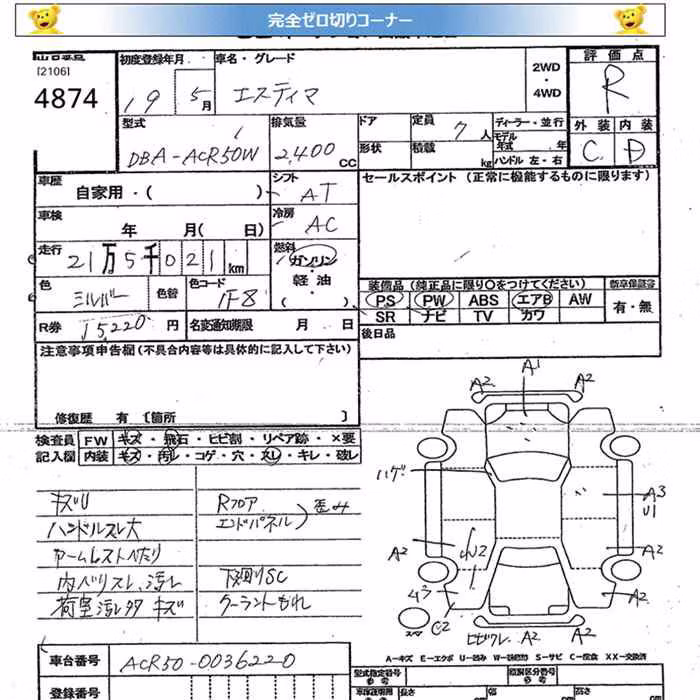 完全ゼロ切りコーナー
[2106]
4874
初度登録年月
19 5月
車名・グレード
エスティマ
2WD
・
4WD
評価点
R
型式
DBA-ACR50W
排気量
2,400 CC
ドア
形状
定員 7人
積載 kg
ディーラー・並行
モデル年式 年
ハンドル 左・右
外装 内装
C D
車歴
自家用・( )
シフト
AT
セールスポイント (正常に機能するものに限ります)
車検
年 月( 日)
冷房
AC
走行
21万5千021 km
燃料
ガソリン
・
軽油
( )
色
シルバー
色替
色コード
1F8
装備品 (純正品に限り○をつけてください)
新車保証書
PS PW ABS エアB AW
SR ナビ TV カワ
有・無
R券 15,220 円
名変通知期限 月 日
後日品
注意事項申告欄 (不具合内容等は具体的に記入して下さい)
修復歴 有 〔箇所 〕
検査員
記入欄
FW キズ・飛石・ヒビ割・リペア跡・×要
内装 キズ・汚レ・コゲ・穴・スレ・キレ・破レ
キズU
ハンドルスレ大
アームレストへたり
内ベリスレ、汚レ
荷室汚レ多 キズ
Rフロア
エンドパネル
歪み
下廻りSC
クーラントもれ
A1
A2
A2
ハゲ
A3
U1
A2
A2
A2
C2
スペ
ヒビワレ A2
A2
A-キズ E-エクボ U-凹み S-サビ C-腐食 XX-交換済
車台番号
ACR50-0036220
登録番号
型式指定番号
参考
類別区分番号
参考
長さ